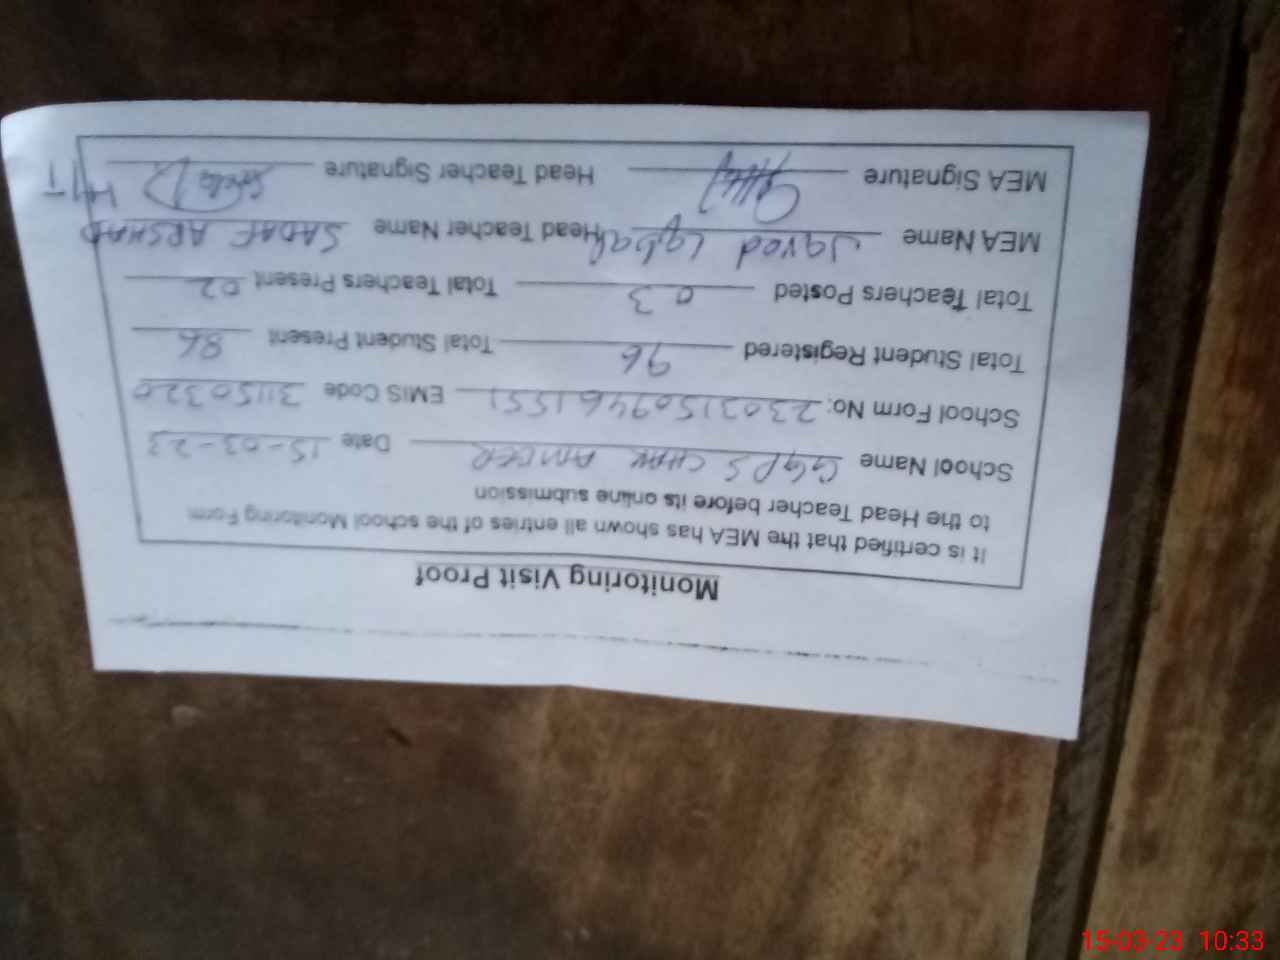 Monitoring Visit Proof
It is certified that the MEA has shown all entries of the school Monitoring Form
to the Head Teacher before its online submission
School Name GGPS CHAK AMEER Date 15-03-23
School Form No: 23031509461551 EMIS Code 31150320
Total Student Registered 96 Total Student Present 86
Total Teachers Posted 03 Total Teachers Present 02
MEA Name Javed Iqbal Head Teacher Name SADAF ARSHAD
MEA Signature Head Teacher Signature H/T
15-03-23 10:33